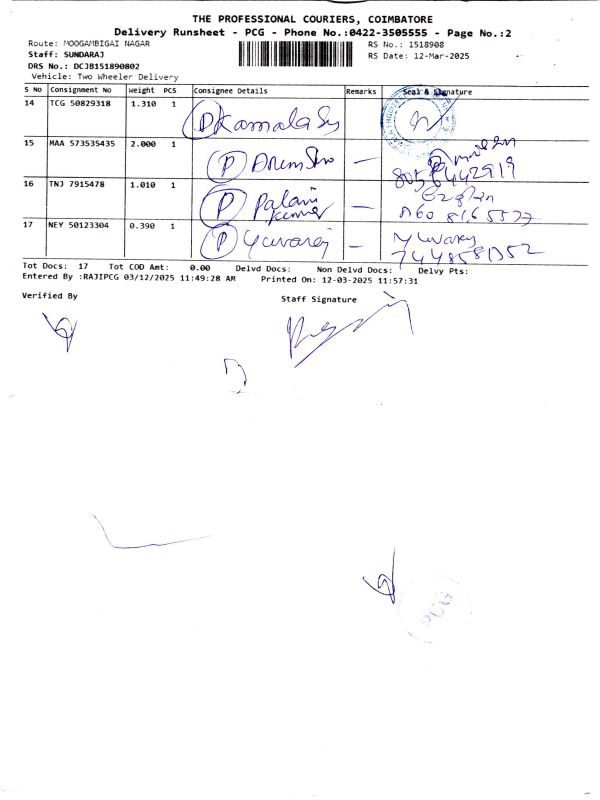 THE PROFESSIONAL COURIERS, COIMBATORE
Delivery Runsheet - PCG - Phone No.:0422-3505555 - Page No.:2
Route: MOOGAMBIGAI NAGAR RS No.: 1518908
Staff: SUNDARAJ RS Date: 12-Mar-2025
DRS No.: DCJB151890802
Vehicle: Two Wheeler Delivery
S No Consignment No Weight PCS Consignee Details Remarks Seal & Signature
14 TCG 50829318 1.310 1 P Kamala
15 MAA 573535435 2.000 1 P —
8056442919
16 TNJ 7915478 1.010 1 P Palani kumar —
17 NEY 50123304 0.390 1 P Yuvaraj — Yuvaraj
Tot Docs: 17 Tot COD Amt: 0.00 Delvd Docs: Non Delvd Docs: Delvy Pts:
Entered By :RAJIPCG 03/12/2025 11:49:28 AM Printed On: 12-03-2025 11:57:31
Verified By Staff Signature
PCG